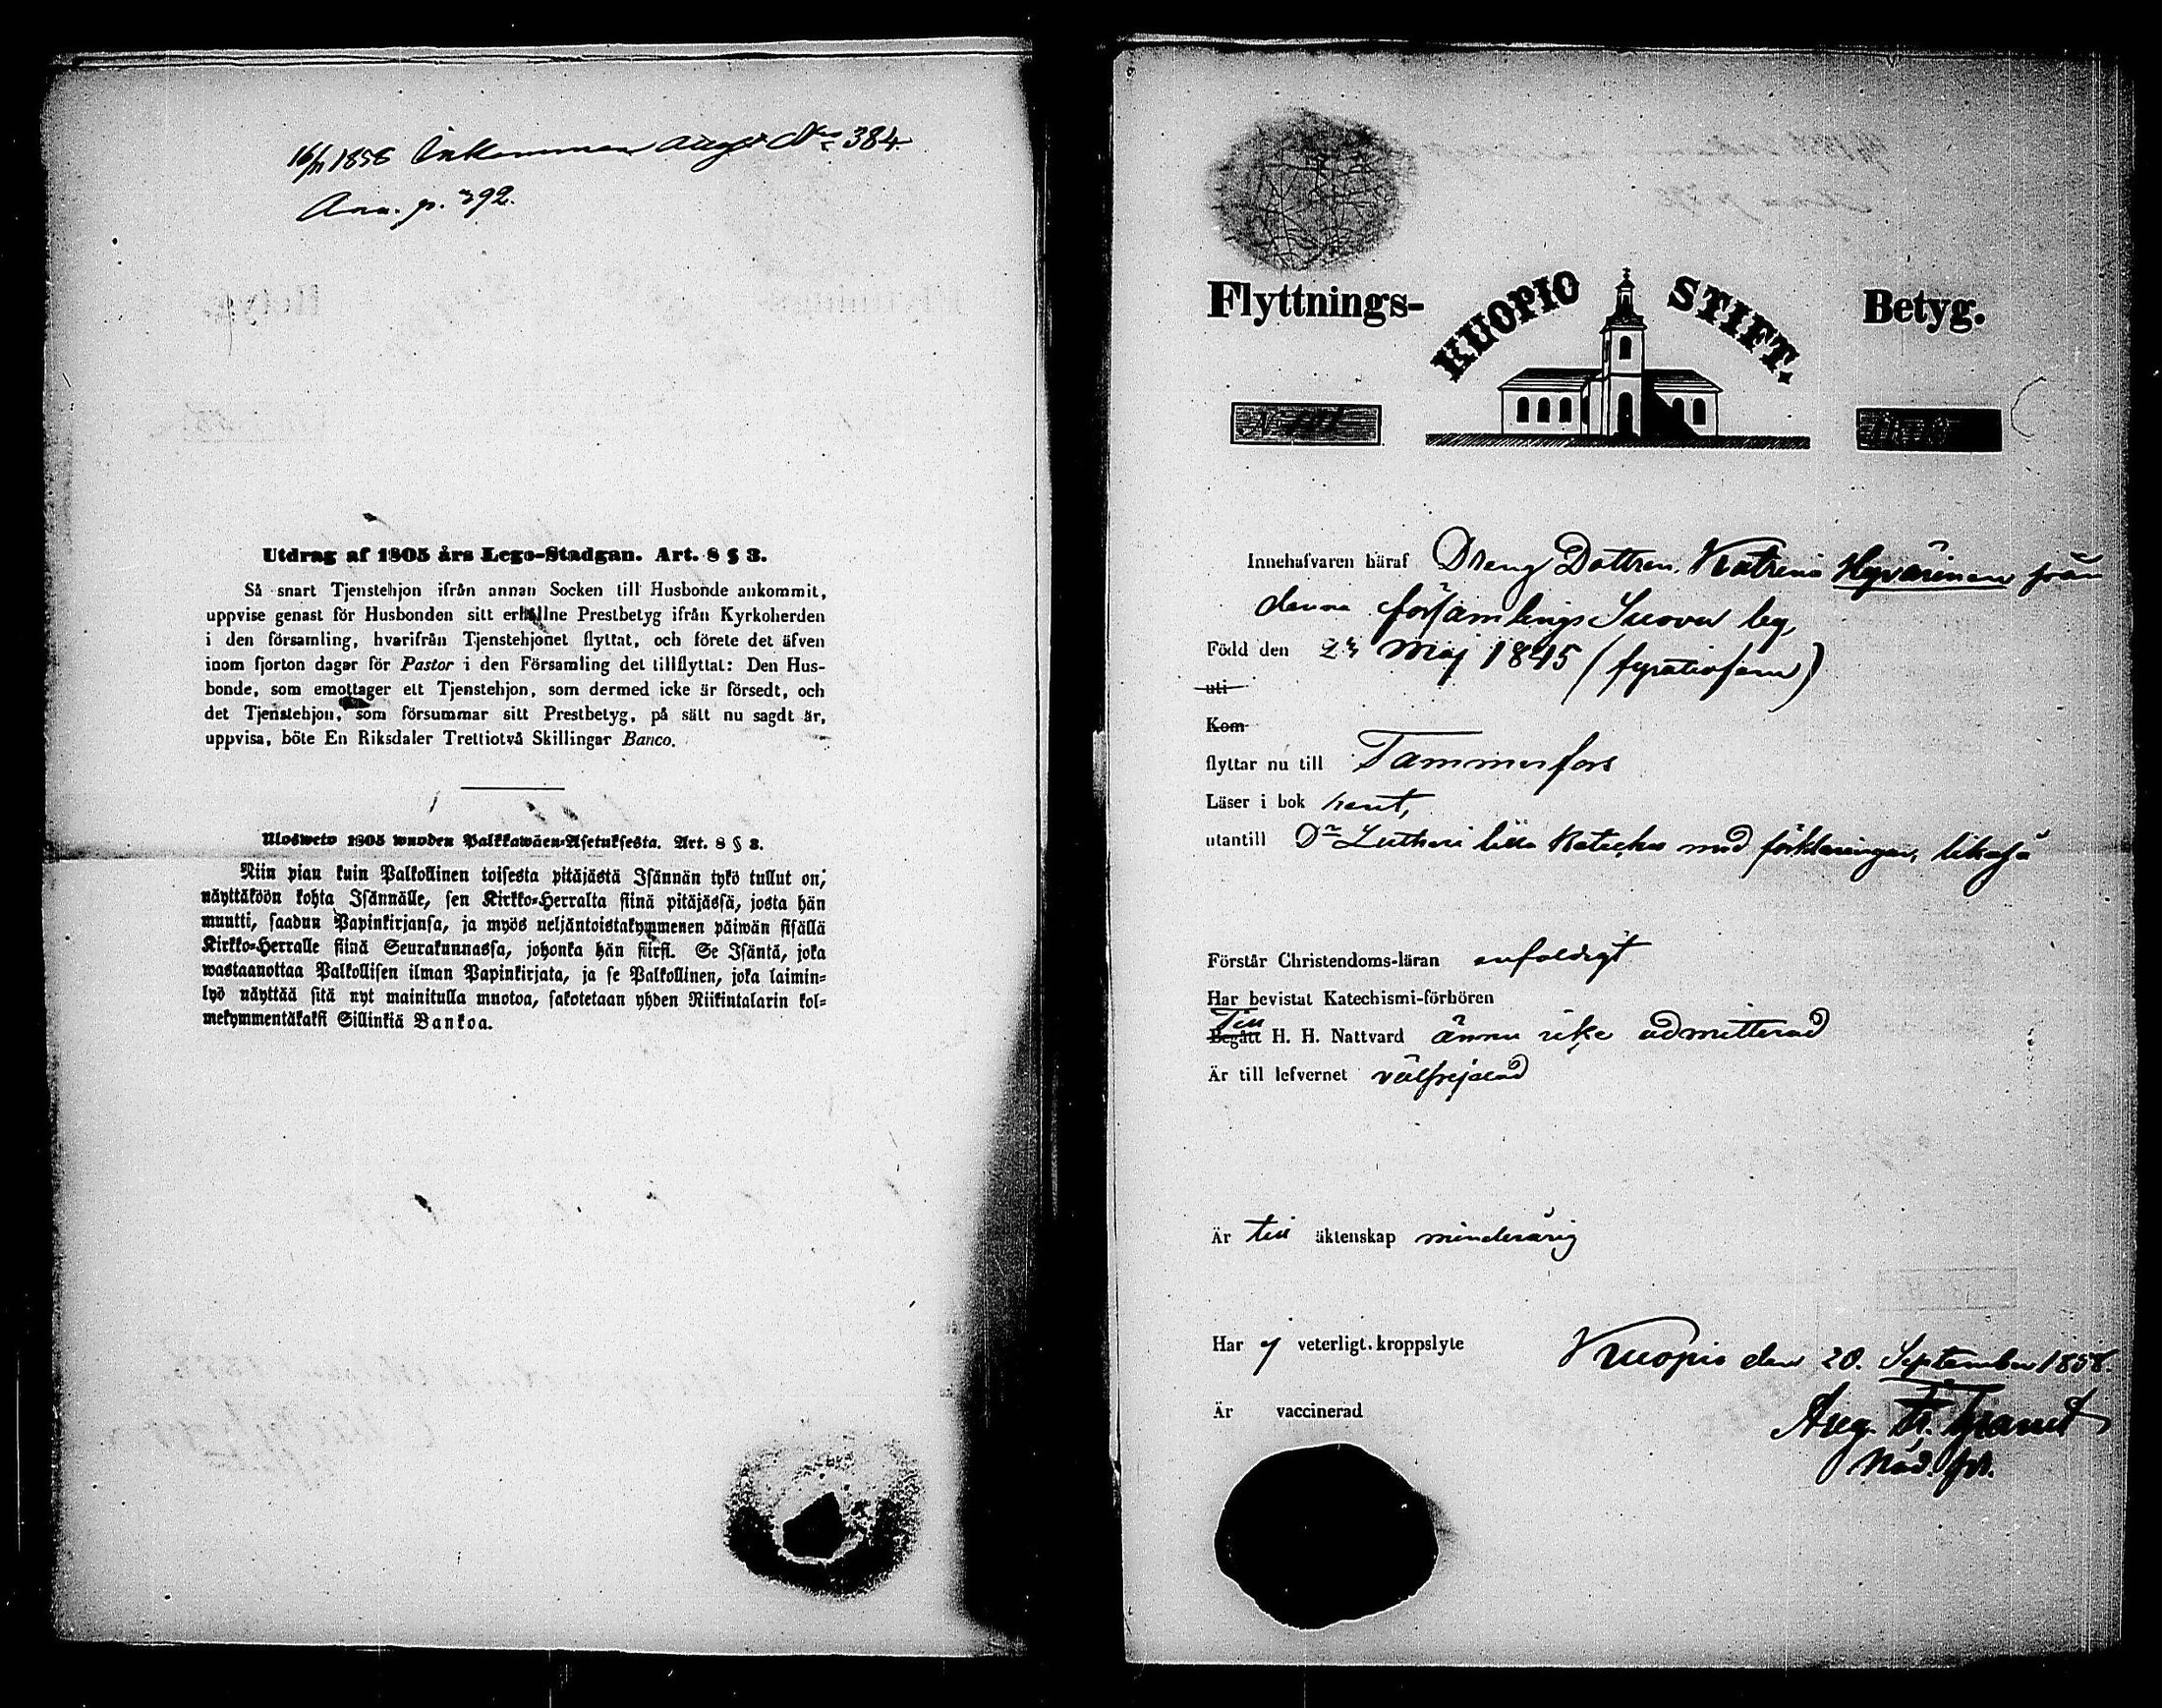 16/11 1858 Inkommen August No 384.
Ann. p. 392.
Utdrag af 1805 års Lego-Stadgan. Art. 8 § 3.
Så snart Tjenstehjon ifrån annan Socken till Husbonde ankommit,
uppvise genast för Husbonden sitt erhållne Prestbetyg ifrån Kyrkoherden
i den församling, hvarifrån Tjenstehjonet flyttat, och förete det äfven
inom fjorton dagar för Pastor i den Församling det tillflyttat: Den Hus-
bonde, som emottager ett Tjenstehjon, som dermed icke är försedt, och
det Tjenstehjon, som försummar sitt Prestbetyg, på sätt nu sagdt är,
uppvisa, böte En Riksdaler Trettiotvå Skillingar Banco.
Ulosweto 1805 wuoden Palkkawäen-Asetuksesta. Art. 8 § 3.
Niin pian kuin Palkollinen toisesta pitäjästä Isännän tykö tullut on,
näyttäköön kohta Isännälle, sen Kirkko-Herralta siinä pitäjässä, josta hän
muutti, saadun Papinkirjansa, ja myös neljäntoistakymmenen päiwän sisällä
Kirkko-Herralle siinä Seurakunnassa, johonka hän siirsi. Se Isäntä, joka
wastaanottaa Palkollisen ilman Papinkirjata, ja se Palkollinen, joka laimin-
lyö näyttää sitä nyt mainitulla muotoa, sakotetaan yhden Riikintalarin kol-
mekymmentäkaksi Sillinkiä Bankoa.
Flyttnings- KUOPIO STIFT. Betyg.
Innehafvaren häraf Dreng Dottren Katrina Hyvärinen från
denna församlings Suovu by,
Född den 23 Maj 1845 (fyratiofem)
uti
Kom
flyttar nu till Tammerfors
Läser i bok rent,
utantill Dr Lutheri lilla Kateches med förklaringar, likaså
Förstår Christendoms-läran enfaldigt
Har bevistat Katechismi-förhören
Till
Begått H. H. Nattvard ännu icke admitterad
Är till lefvernet välfrejdad
Är till äktenskap minderårig
Har ej veterligt kroppslyte
Kuopio den 20. September 1858.
Är vaccinerad
Aug. Fr. Granit
Nåd. pr.